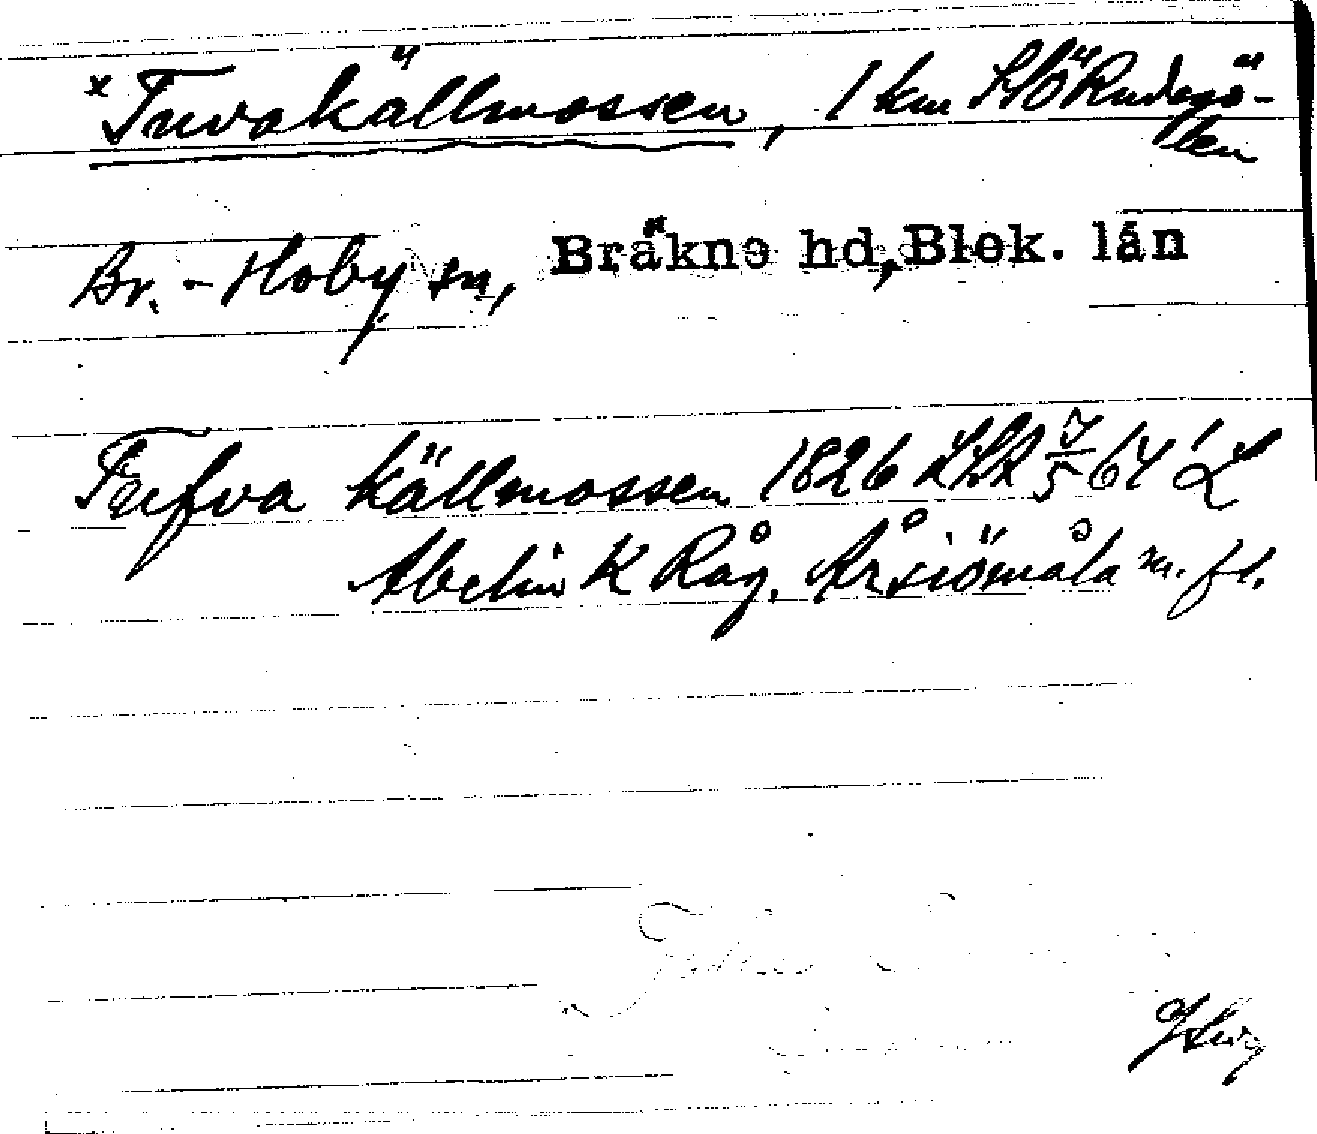 x Tuvakällmossen, 1 km SSÖ Rudegö-
len
Br.-Hoby sn, Bräkne hd, Blek. län
Tufva källmossen 1826 LSA 7/5 64 L
Abelin K Råg. Årsjömåla m. fl.